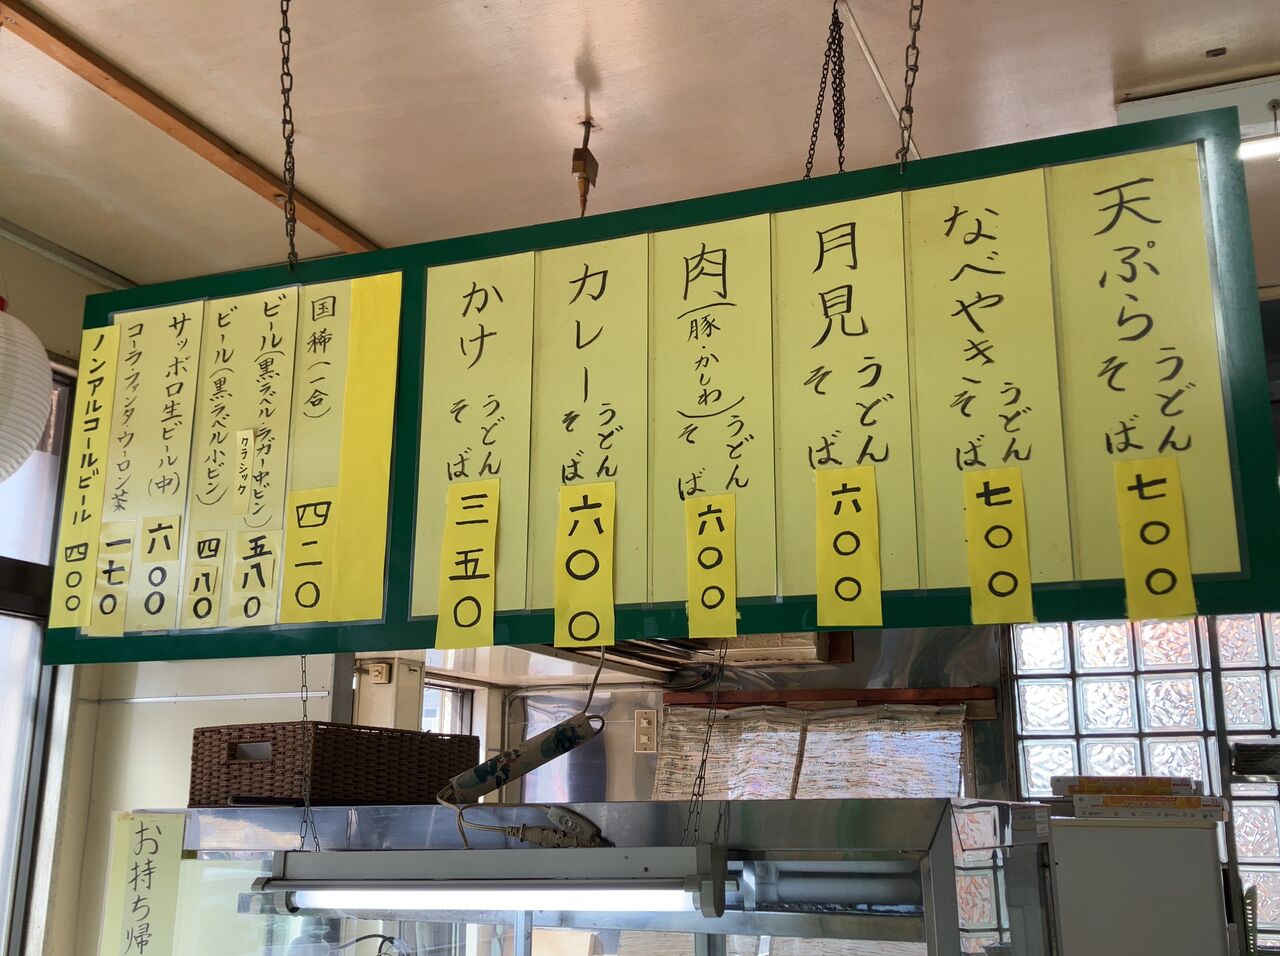 天ぷら うどん そば 七〇〇
なべやき うどん そば 七〇〇
月見 うどん そば 六〇〇
肉(豚・かしわ) うどん そば 六〇〇
カレー うどん そば 六〇〇
かけ うどん そば 三五〇
国稀(一合) 四二〇
ビール(黒ラベル・ラガー中ビン) 五八〇
クラシック
ビール(黒ラベル小ビン) 四八〇
サッポロ生ビール(中) 六〇〇
コーラ・ファンタ・ウーロン茶 一七〇
ノンアルコールビール 四〇〇
お持ち帰